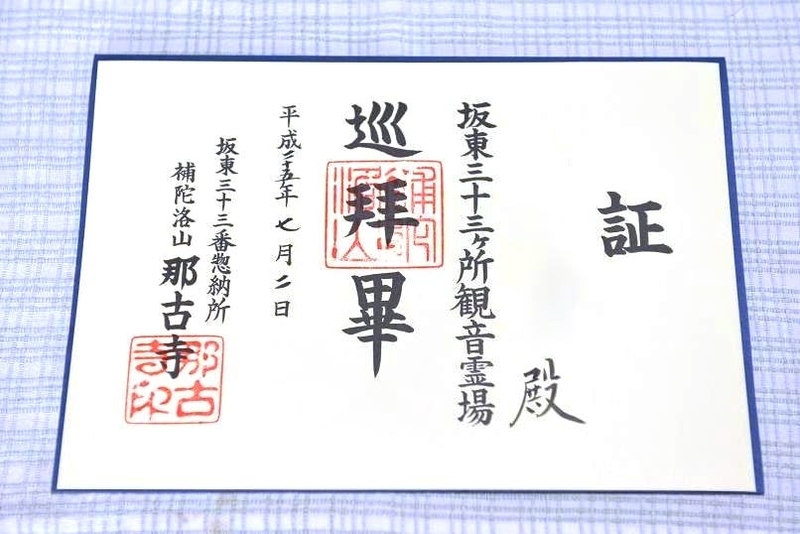 証
殿
坂東三十三ヶ所観音霊場
巡拝畢
平成二十五年七月二日
坂東三十三番惣納所
補陀洛山那古寺
那古
寺印